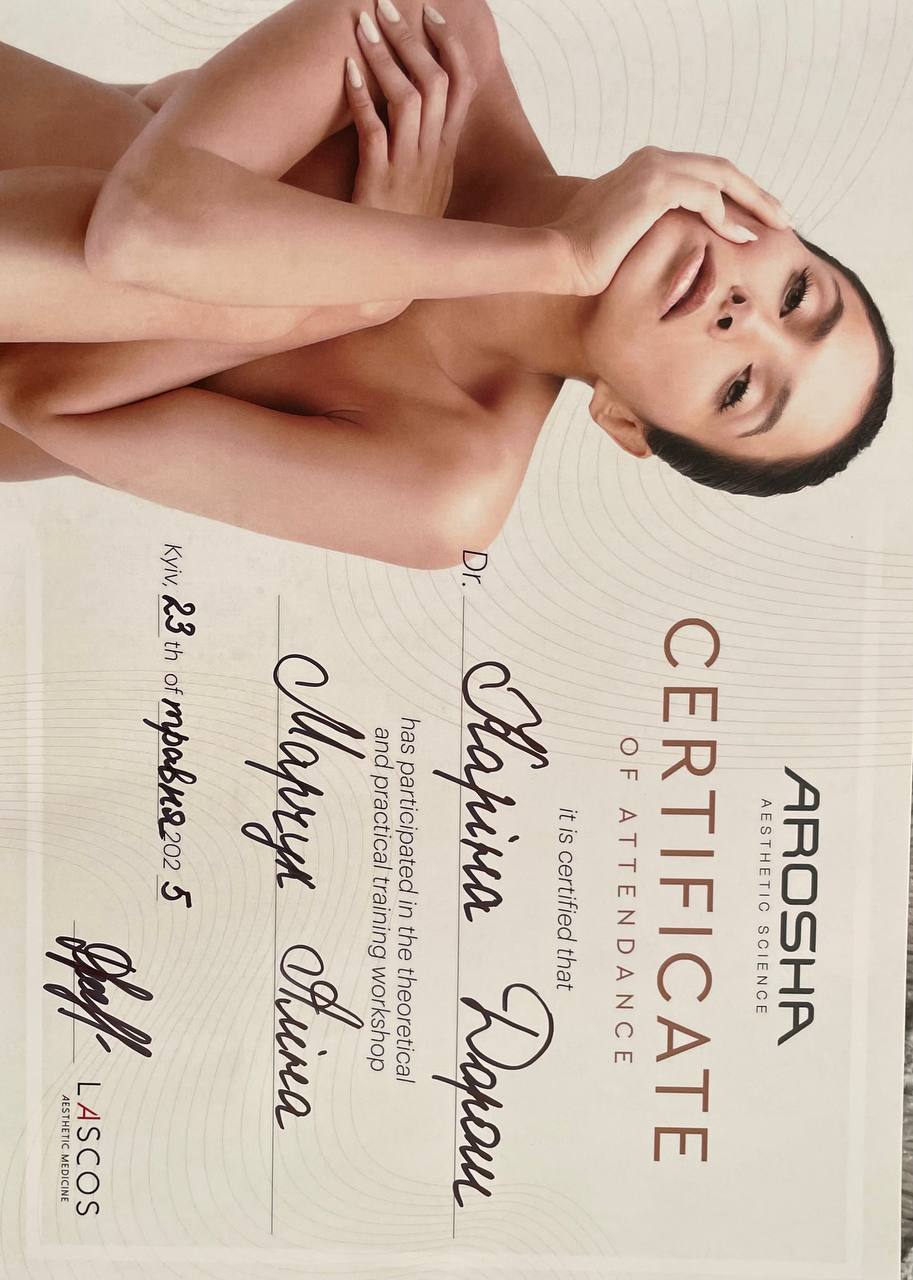 AROSHA
AESTHETIC SCIENCE
CERTIFICATE
OF ATTENDANCE
it is certified that
Dr. Каріна Дорош
has participated in the theoretical
and practical training workshop
Марчук Аліна
Kyiv, 23 th of травня 202 5
LASCOS
AESTHETIC MEDICINE